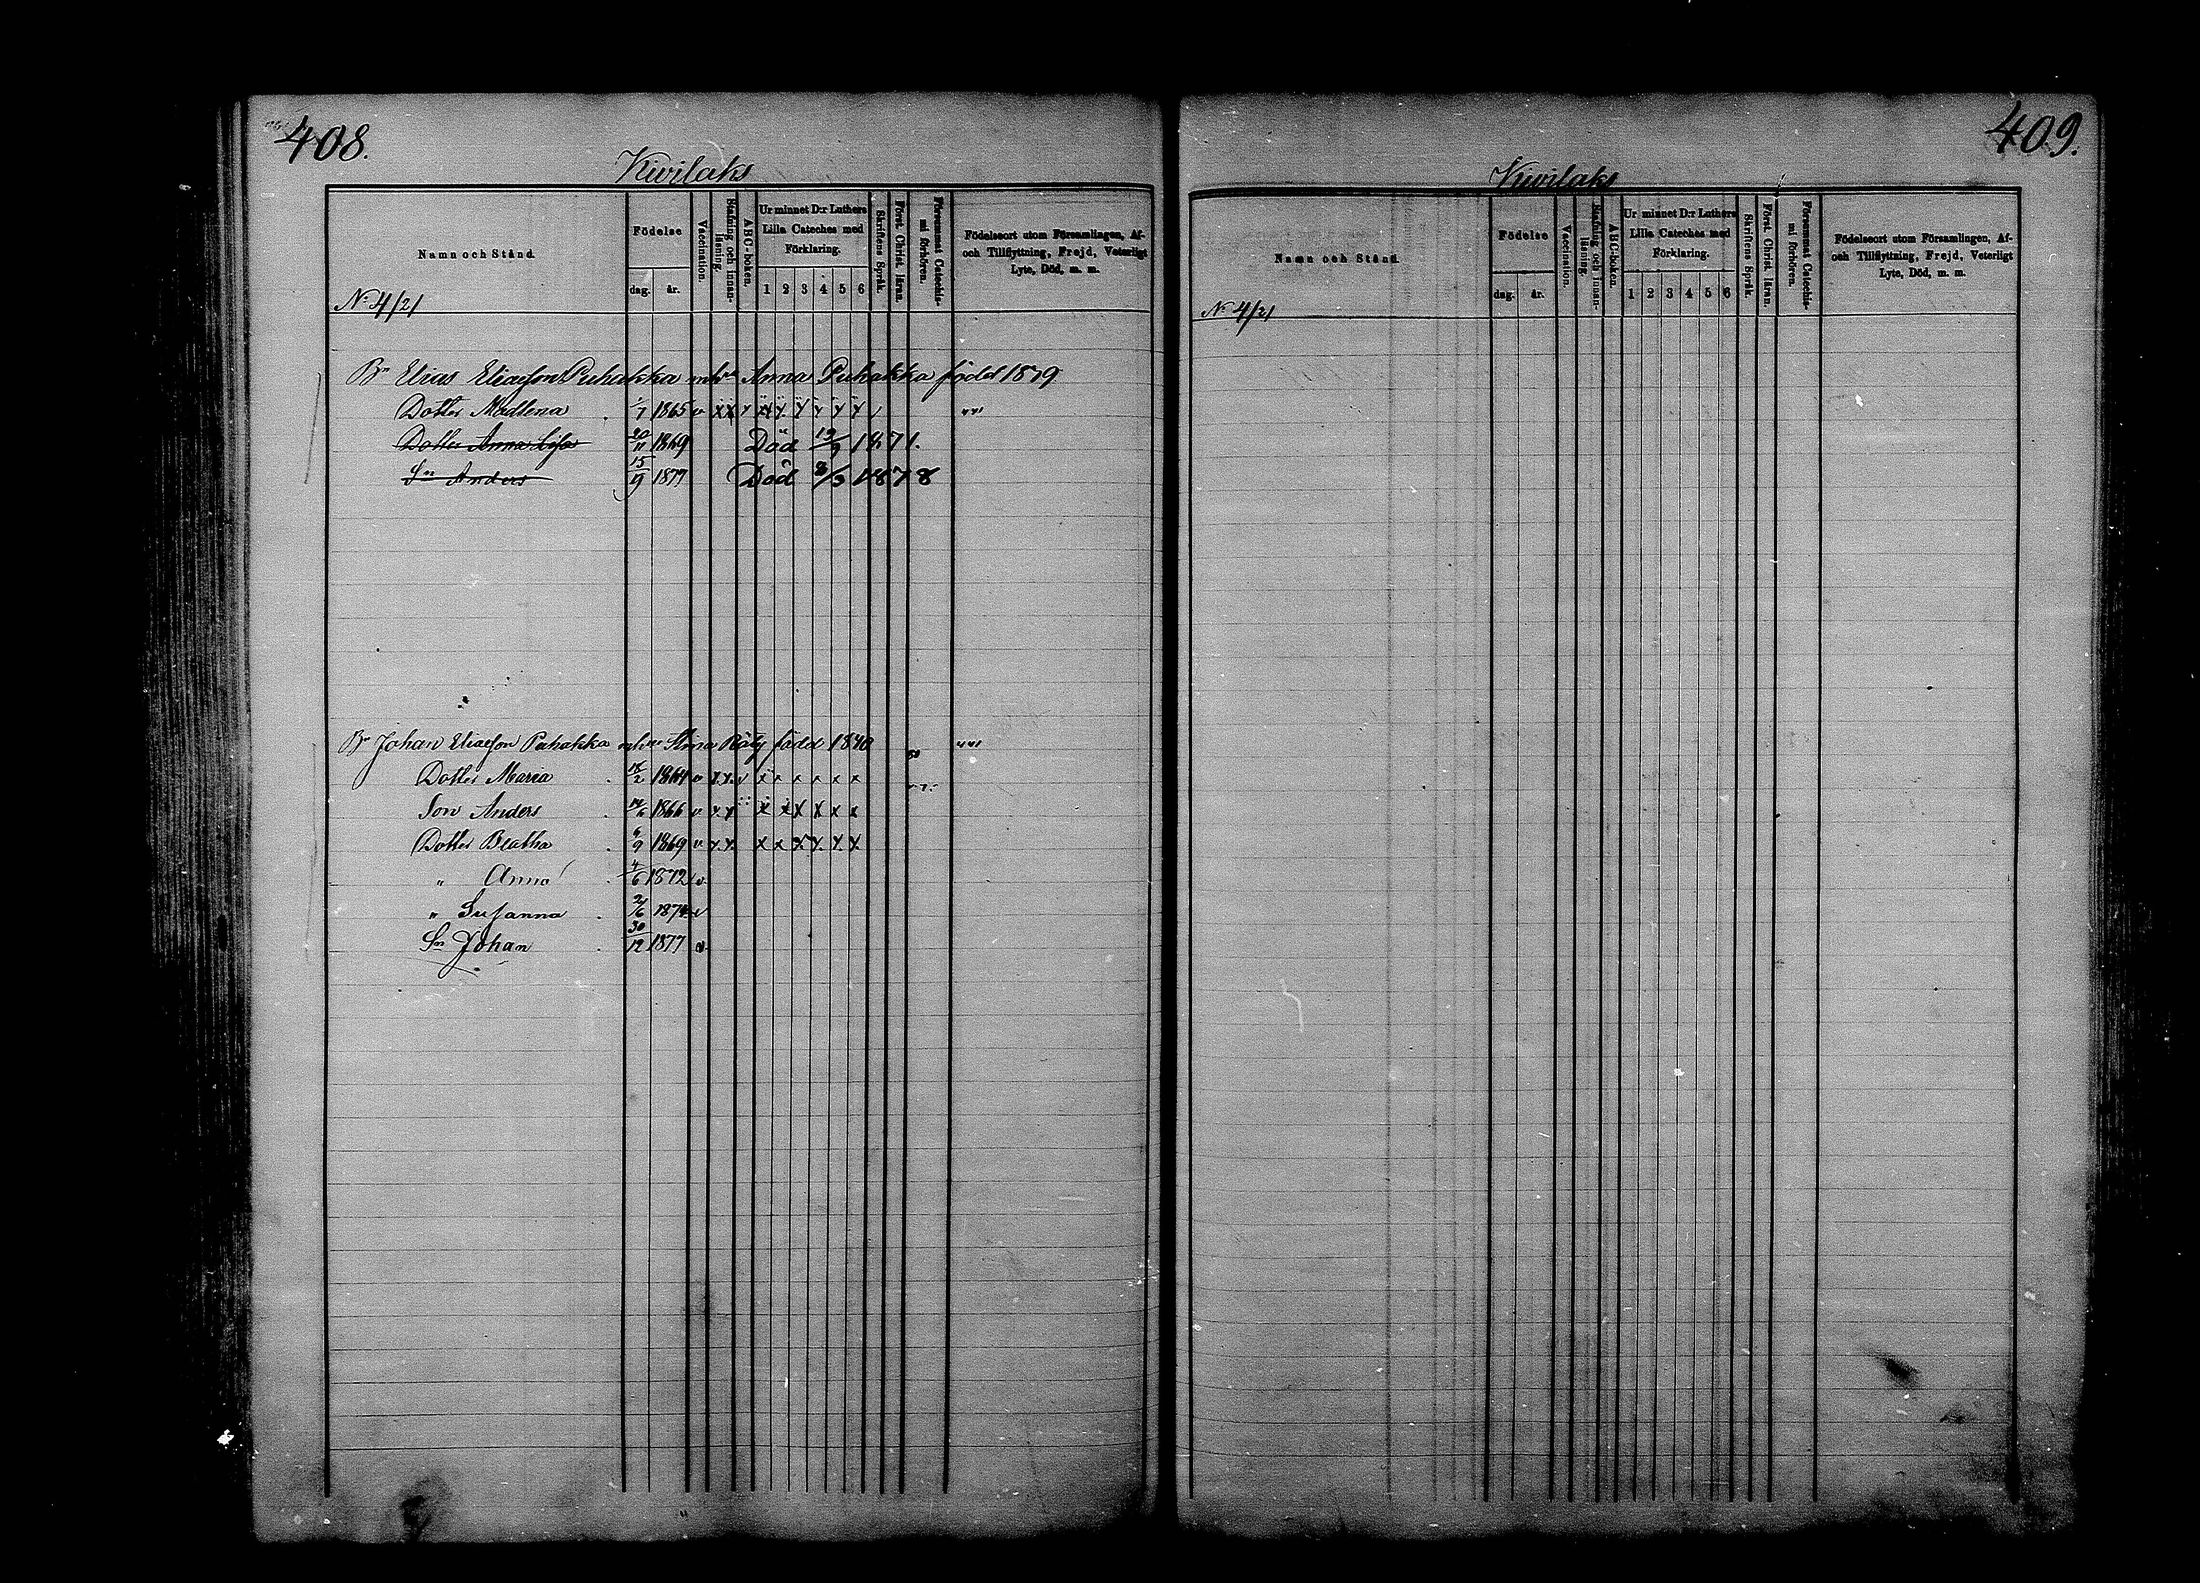 408.
Kivilaks
Namn och Stånd.
Födelse
dag. år.
Vaccination.
Stafning och innan-
läsning.
ABC-boken.
Ur minnet D:r Luthers
Lilla Cateches med
Förklaring.
1 2 3 4 5 6
Skriftens Språk.
Först. Christ. läran.
Försummat Catechis-
mi förhören.
Födelseort utom Församlingen, Af-
och Tillflyttning, Frejd, Veterligt
Lyte, Död, m. m.
N: 4/21
Bn Elias Eliasson Puhakka mhu Anna Puhakka född 1879
Dotter Madlena 1/7 1865 v x x y x y y y y y
Dotter Anna Lisa 20/11 1869 Död 12/9 1871.
Sn Anders 15/9 1877 Död 8/3 1878
Bn Johan Eliasson Puhakka mhu Stina Räty född 1840
Dotter Maria 18/2 1864 v x x. v x x x x x x
Son Anders 14/6 1866 v x x x x x x x x
Dotter Beatha 6/9 1869 v x x. x x x x. x. x.
" Anna 4/6 1872 v.
" Susanna 2/6 1874 v
Sn Johan 30/12 1877 v.
409.
Kivilaks
Namn och Stånd.
Födelse
dag. år.
Vaccination.
Stafning och innan-
läsning.
ABC-boken.
Ur minnet D:r Luthers
Lilla Cateches med
Förklaring.
1 2 3 4 5 6
Skriftens Språk.
Först. Christ. läran.
Försummat Catechis-
mi förhören.
Födelseort utom Församlingen, Af-
och Tillflyttning, Frejd, Veterligt
Lyte, Död, m. m.
N: 4/21